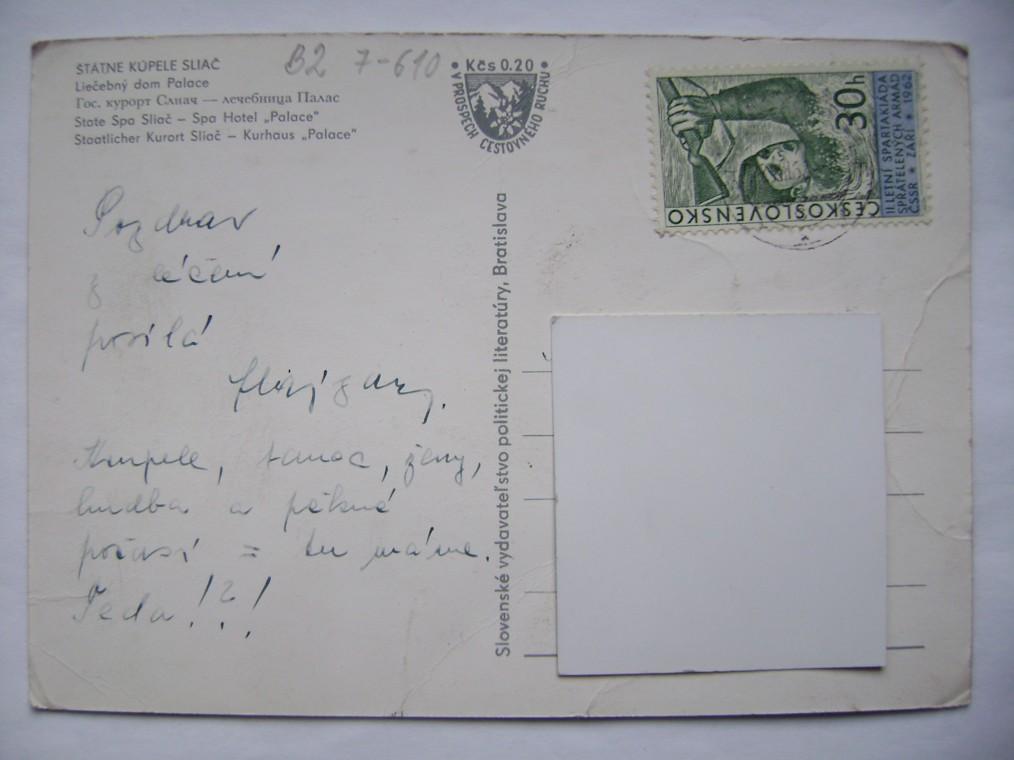 ŠTÁTNE KÚPELE SLIAČ
Liečebný dom Palace
Гос. курорт Слиач — лечебница Палас
State Spa Sliač – Spa Hotel „Palace"
Staatlicher Kurort Sliač – Kurhaus „Palace"
B2 7-610
Kčs 0.20
V PROSPECH CESTOVNÉHO RUCHU
30h
ČESKOSLOVENSKO
II LETNÍ SPARTAKIÁDA
SPŘÁTELENÝCH ARMÁD
ČSSR ★ ZÁŘÍ ★ 1962
Slovenské vydavateľstvo politickej literatúry, Bratislava
Pozdrav
z léčení
posílá
Kupele, tanec, ženy,
hudba a pěkné
počasí = tu máme.
Teda!?!